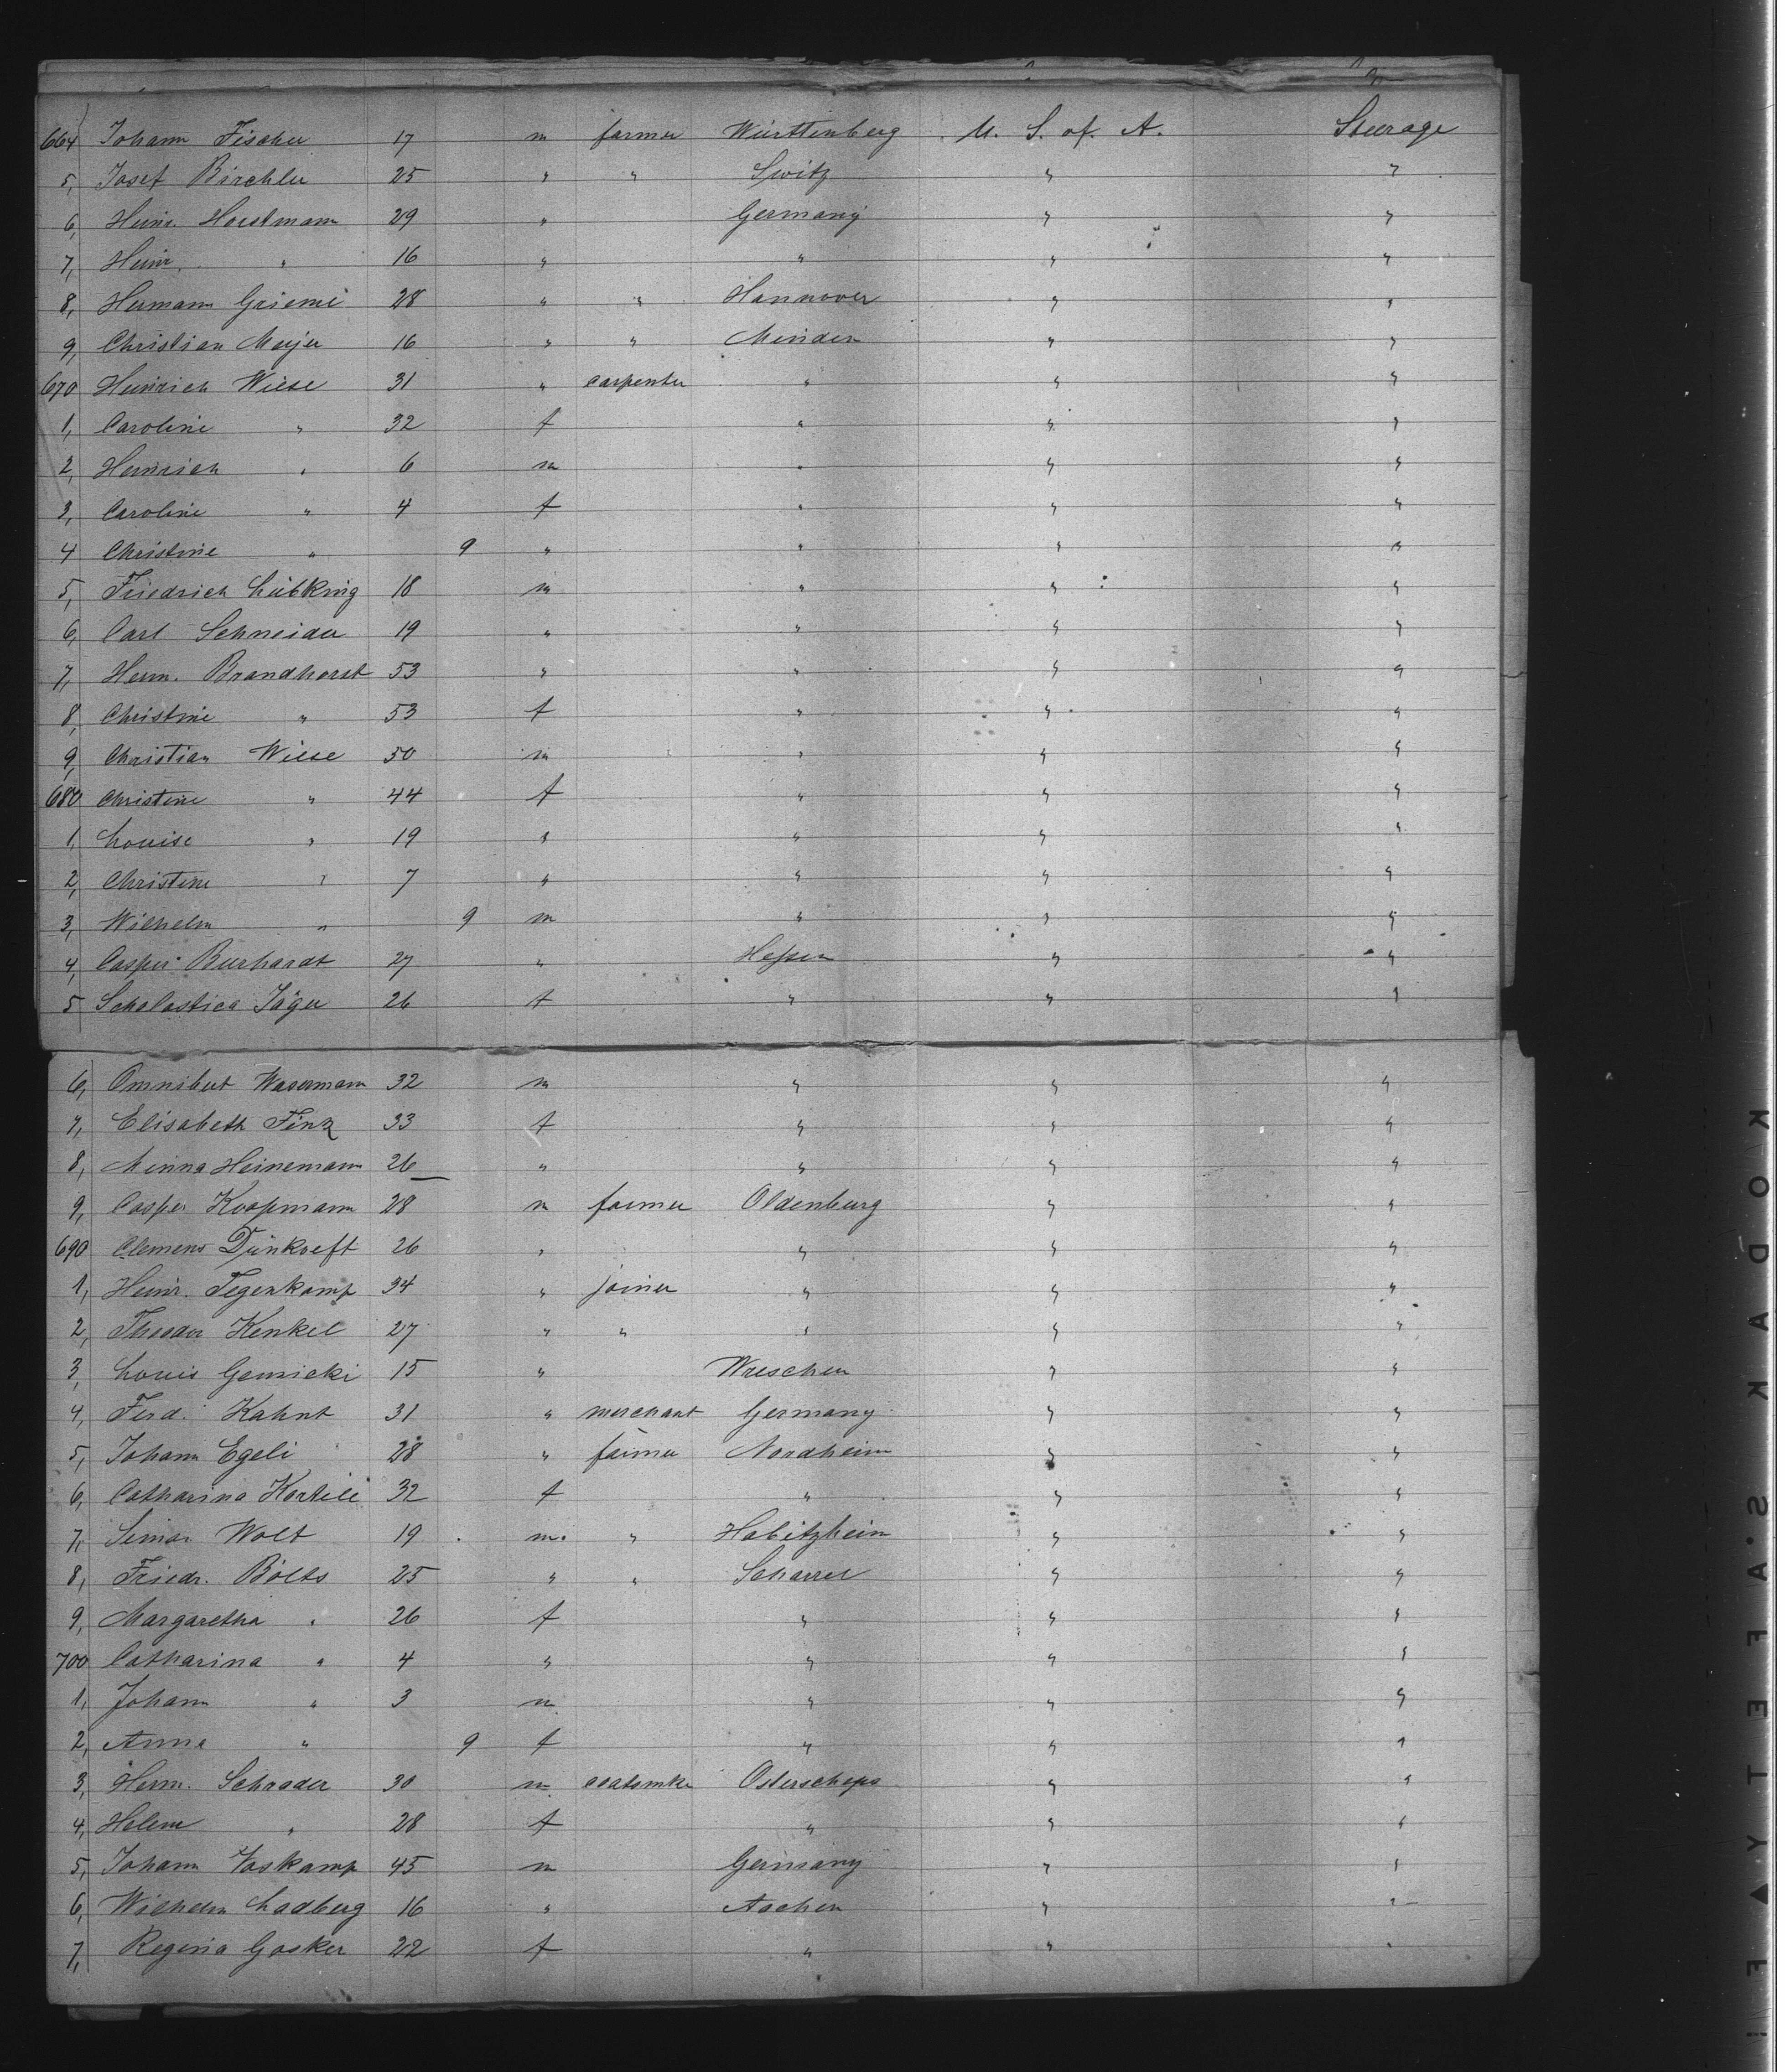 664 Johann Fischer 17 m farmer Württenberg U. S. of. A. Steerage
5, Josef Birchler 25 " " Switz " "
6, Heinr. Horstmann 29 " Germany " "
7, Heinr. " 16 " " " "
8, Hermann Grieme 28 " " Hannover " "
9, Christian Meyer 16 " " Minden " "
670 Heinrich Wiese 31 " carpenter " " "
1, Caroline " 32 f " " "
2, Heinrich " 6 m " " "
3, Caroline " 4 f " " "
4 Christine " 9 " " " "
5, Friedrich Lübking 18 m " " "
6, Carl Schneider 19 " " " "
7, Herm. Brandhorst 53 " " " "
8, Christine " 53 f " " "
9, Christian Wiese 50 m " " "
680 Christine " 44 f " " "
1, Louise " 19 " " " "
2, Christine " 7 " " " "
3, Wilhelm " 9 m " " "
4, Casper Burhardt 27 " Hessen " "
5 Scholastica Jäger 26 f " " "
6, Wasermann 32 m " " "
7, Elisabeth Finz 33 f " " "
8, Minna Heinemann 26 " " " "
9, Casper Koopmann 28 m farmer Oldenburg " "
690 Clemens 26 " " " "
1, Heinr. Tegenkamp 34 " joiner " " "
2, Theodor Kenkel 27 " " " " "
3, Louis 15 " Wreschen " "
4, Ferd. Kahnt 31 " merchant Germany " "
5, Johann Egeli 28 " farmer Nordheim " "
6, Catharina 32 f " " "
7, Wolf 19 m. " Habitzheim " "
8, Friedr. Bölts 25 " " Scharrel " "
9, Margaretha " 26 f " " "
700 Catharina " 4 " " " "
1, Johann " 3 m " " "
2, Anna " 9 f " " "
3, Herm. Schrader 30 m Osterscheps " "
4, Helene " 28 f " " "
5, Johann Voskamp 45 m Germany " "
6, Wilhelm Ladberg 16 " Aachen " "
7, Regina Gosker 22 f " " "
KODAK S.AFETY ▲ F